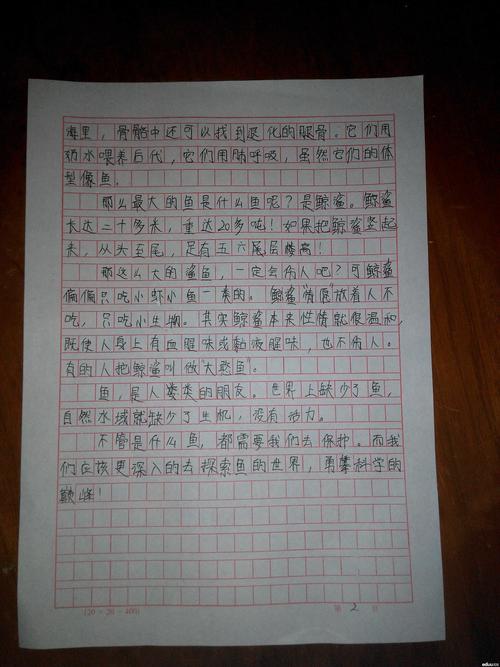 海里，骨骼中还可以找到退化的腿骨。它们用
奶水喂养后代，它们用肺呼吸，虽然它们的体
型像鱼。
那么最大的鱼是什么鱼呢？是鲸鲨。鲸鲨
长达二十多米，重达20多吨！如果把鲸鲨竖起
来，从头至尾，足有五六层楼高！
那这么大的鲨鱼，一定会伤人吧？可鲸鲨
偏偏只吃小虾小鱼一类的。鲸鲨"情愿"放着人不
吃，只吃小生物。其实鲸鲨本来性情就很温和，
既使人身上有血腥味或黏液腥味，也不伤人。
有的人把鲸鲨叫做"大憨鱼"。
鱼，是人类的朋友。世界上缺少了鱼，
自然水域就缺少了生机，没有活力。
不管是什么鱼，都需要我们去保护。而我
们应该更深入的去探索鱼的世界，勇攀科学的
巅峰！
(20×20=400)
第 2 页